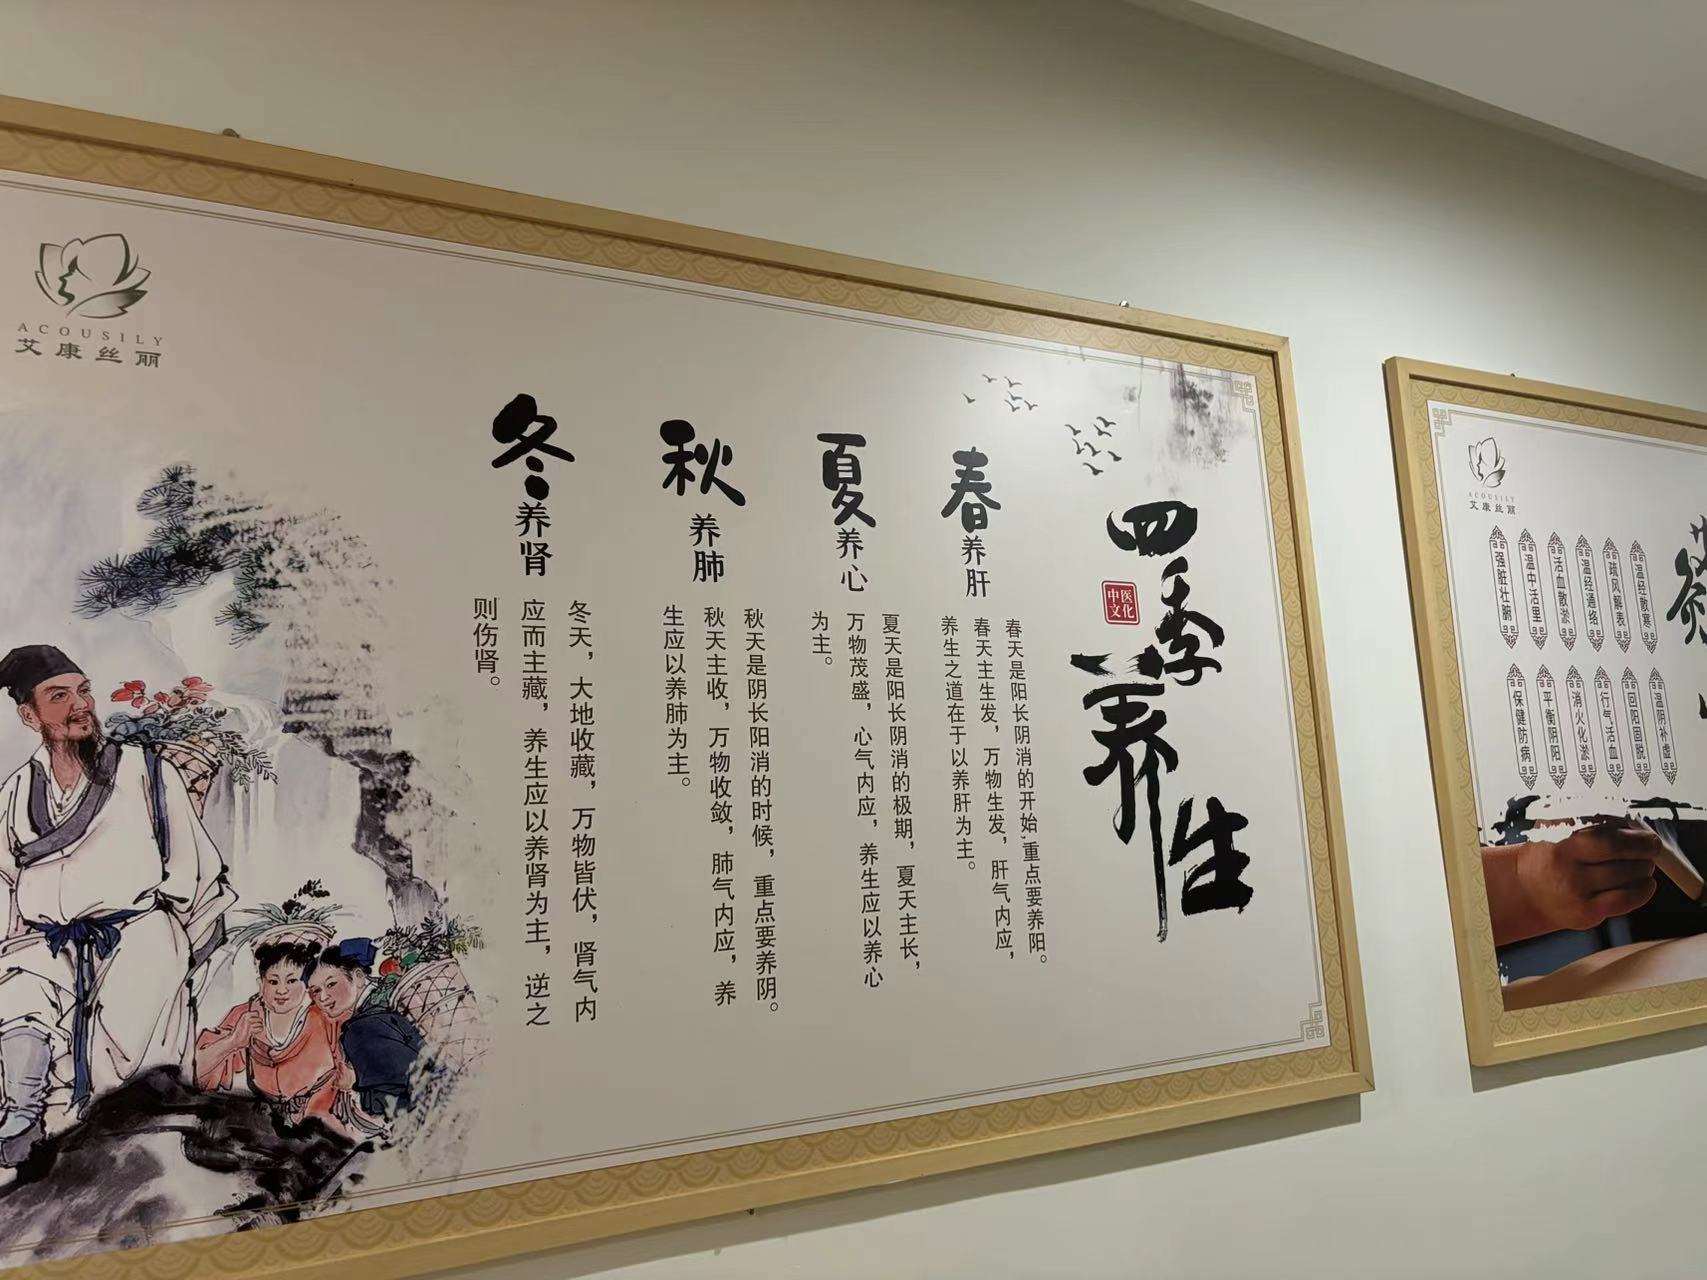 ACOUSILY
艾康丝丽
四季养生
中医文化
春养肝
春天是阳长阴消的开始,重点要养阳。
春天主生发，万物生发，肝气内应，
养生之道在于以养肝为主。
夏养心
夏天是阳长阴消的极期，夏天主长，
万物茂盛，心气内应，养生应以养心
为主。
秋养肺
秋天是阴长阳消的时候，重点要养阴。
秋天主收，万物收敛，肺气内应，养
生应以养肺为主。
冬养肾
冬天，大地收藏，万物皆伏，肾气内
应而主藏，养生应以养肾为主，逆之
则伤肾。
ACOUSILY
艾康丝丽
温经散寒
疏风解表
温经通络
活血散淤
温中活里
强脏壮腑
温阴补虚
回阳固脱
行气活血
消火化淤
平衡阴阳
保健防病